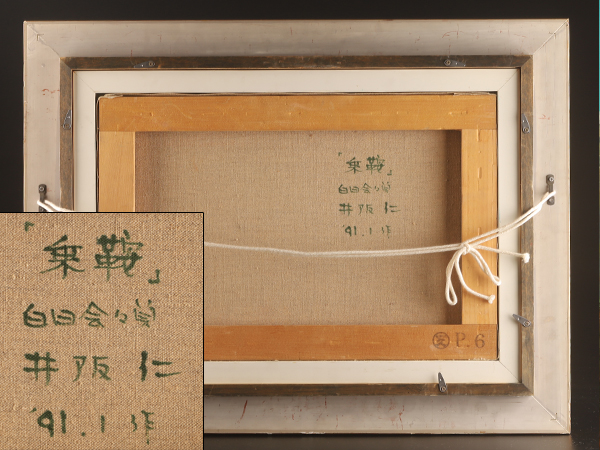 「乗鞍」
白日会々員
井阪 仁
'91.1作
P.6
「乗鞍」
白日会々員
井阪 仁
'91.1作